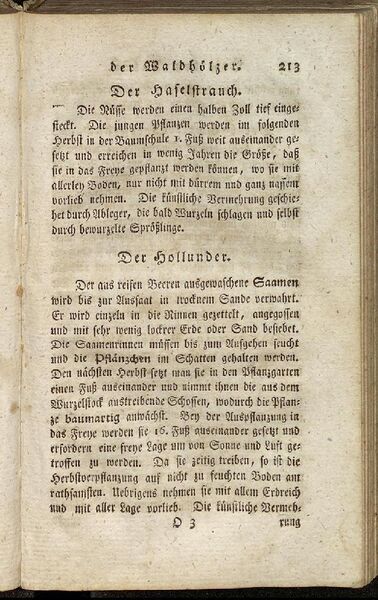 der Waldhölzer. 213
Der Haselstrauch.
Die Nüsse werden einen halben Zoll tief einge-
steckt. Die jungen Pflanzen werden im folgenden
Herbst in der Baumschule 1. Fuß weit auseinander ge-
setzt und erreichen in wenig Jahren die Größe, daß
sie in das Freye gepflanzt werden können, wo sie mit
allerley Boden, nur nicht mit dürrem und ganz nassem
vorlieb nehmen. Die künstliche Vermehrung geschie-
het durch Ableger, die bald Wurzeln schlagen und selbst
durch bewurzelte Sprößlinge.
Der Hollunder.
Der aus reifen Beeren ausgewaschene Saamen
wird bis zur Aussaat in trocknem Sande verwahrt.
Er wird einzeln in die Rinnen gezettelt, angegossen
und mit sehr wenig lockrer Erde oder Sand besiebet.
Die Saamenrinnen müssen bis zum Aufgehen feucht
und die Pflänzchen im Schatten gehalten werden.
Den nächsten Herbst setzt man sie in den Pflanzgarten
einen Fuß auseinander und nimmt ihnen die aus dem
Wurzelstock austreibende Schossen, wodurch die Pflan-
ze baumartig anwächst. Bey der Auspflanzung in
das Freye werden sie 16. Fuß auseinander gesetzt und
erfordern eine freye Lage um von Sonne und Luft ge-
troffen zu werden. Da sie zeitig treiben, so ist die
Herbstverpflanzung auf nicht zu feuchten Boden am
rathsamsten. Uebrigens nehmen sie mit allem Erdreich
und mit aller Lage vorlieb. Die künstliche Vermeh-
O 3 rung